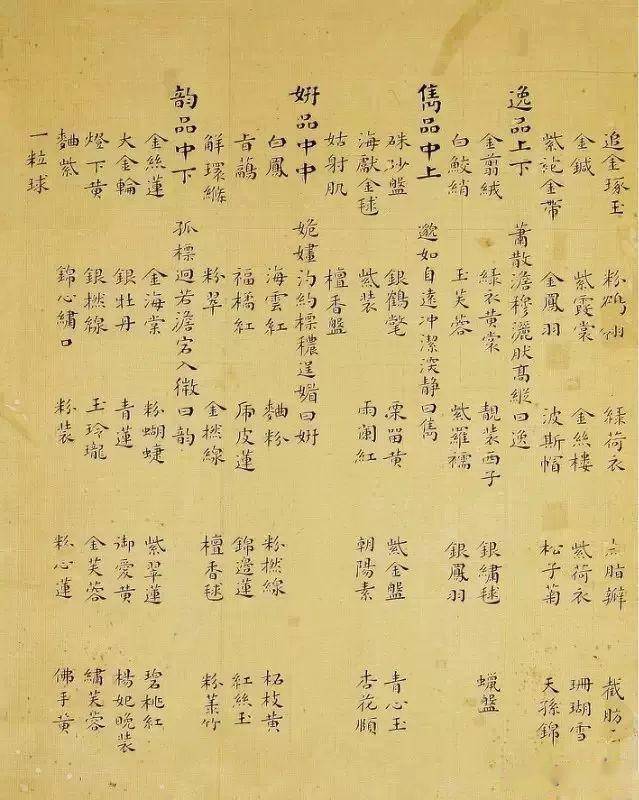 追金琢玉 粉 綠荷衣 脂瓣 截肪
金鍼 紫霞裳 金絲樓 紫荷衣 珊瑚雪
紫袍金帶 金鳳羽 波斯帽 松子菊 天孫錦
逸品上下 蕭散澹穆灑肰高縱曰逸
金剪絨 綠衣黃裳 靚裝西子 銀繡毬 蠟盤
白鮫綃 玉芙蓉 紫羅襦 銀鳳羽
雋品中上 邈如自遠冲潔淡静曰雋
硃砂盤 銀鶴氅 栗留黃 紫金盤 青心玉
海獻金毬 紫裝 雨闌紅 朝陽素 杏花順
姑射肌 檀香盤
妍品中中 姽嫿汋約標穠逞媚曰妍
白鳳 海雲紅 麯粉 粉撚線 柘枝黃
青蓮 福橘紅 虎皮蓮 錦邊蓮 紅絲玉
解環縧 粉翠 金撚線 檀香毬 粉葉竹
韵品中下 孤標迥若澹宕入微曰韵
金絲蓮 金海棠 粉蝴蜨 紫翠蓮 碧桃紅
大金輪 銀牡丹 青蓮 御愛黃 楊妃晚裝
燈下黃 銀撚線 玉玲瓏 金芙蓉 繡芙蓉
麯紫 錦心繡口 粉裝 粉心蓮 佛手黃
一粒球